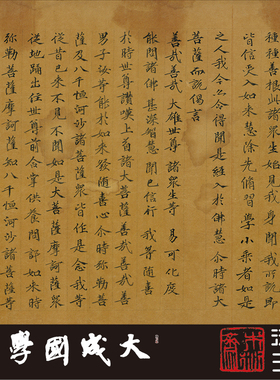 種種善根此諸衆生始見我身聞我所說即
皆信受入如來慧除先修習學小乘者如是
之人我今亦令得聞是經入於佛慧尒時諸大
菩薩而說偈言
善哉善哉 大雄世尊 諸衆生等 易可化度
能問諸佛 甚深智慧 聞已信行 我等隨喜
於時世尊讚嘆上首諸大菩薩善哉善哉善
男子汝等能於如來發隨喜心尒時弥勒菩
薩及八千恒河沙諸菩薩衆皆作是念我等
從昔已來不見不聞如是大菩薩摩訶薩衆
從地踊出住世尊前合掌供養問訊如來時
弥勒菩薩摩訶薩知八千恒河沙諸菩薩等
大成國學